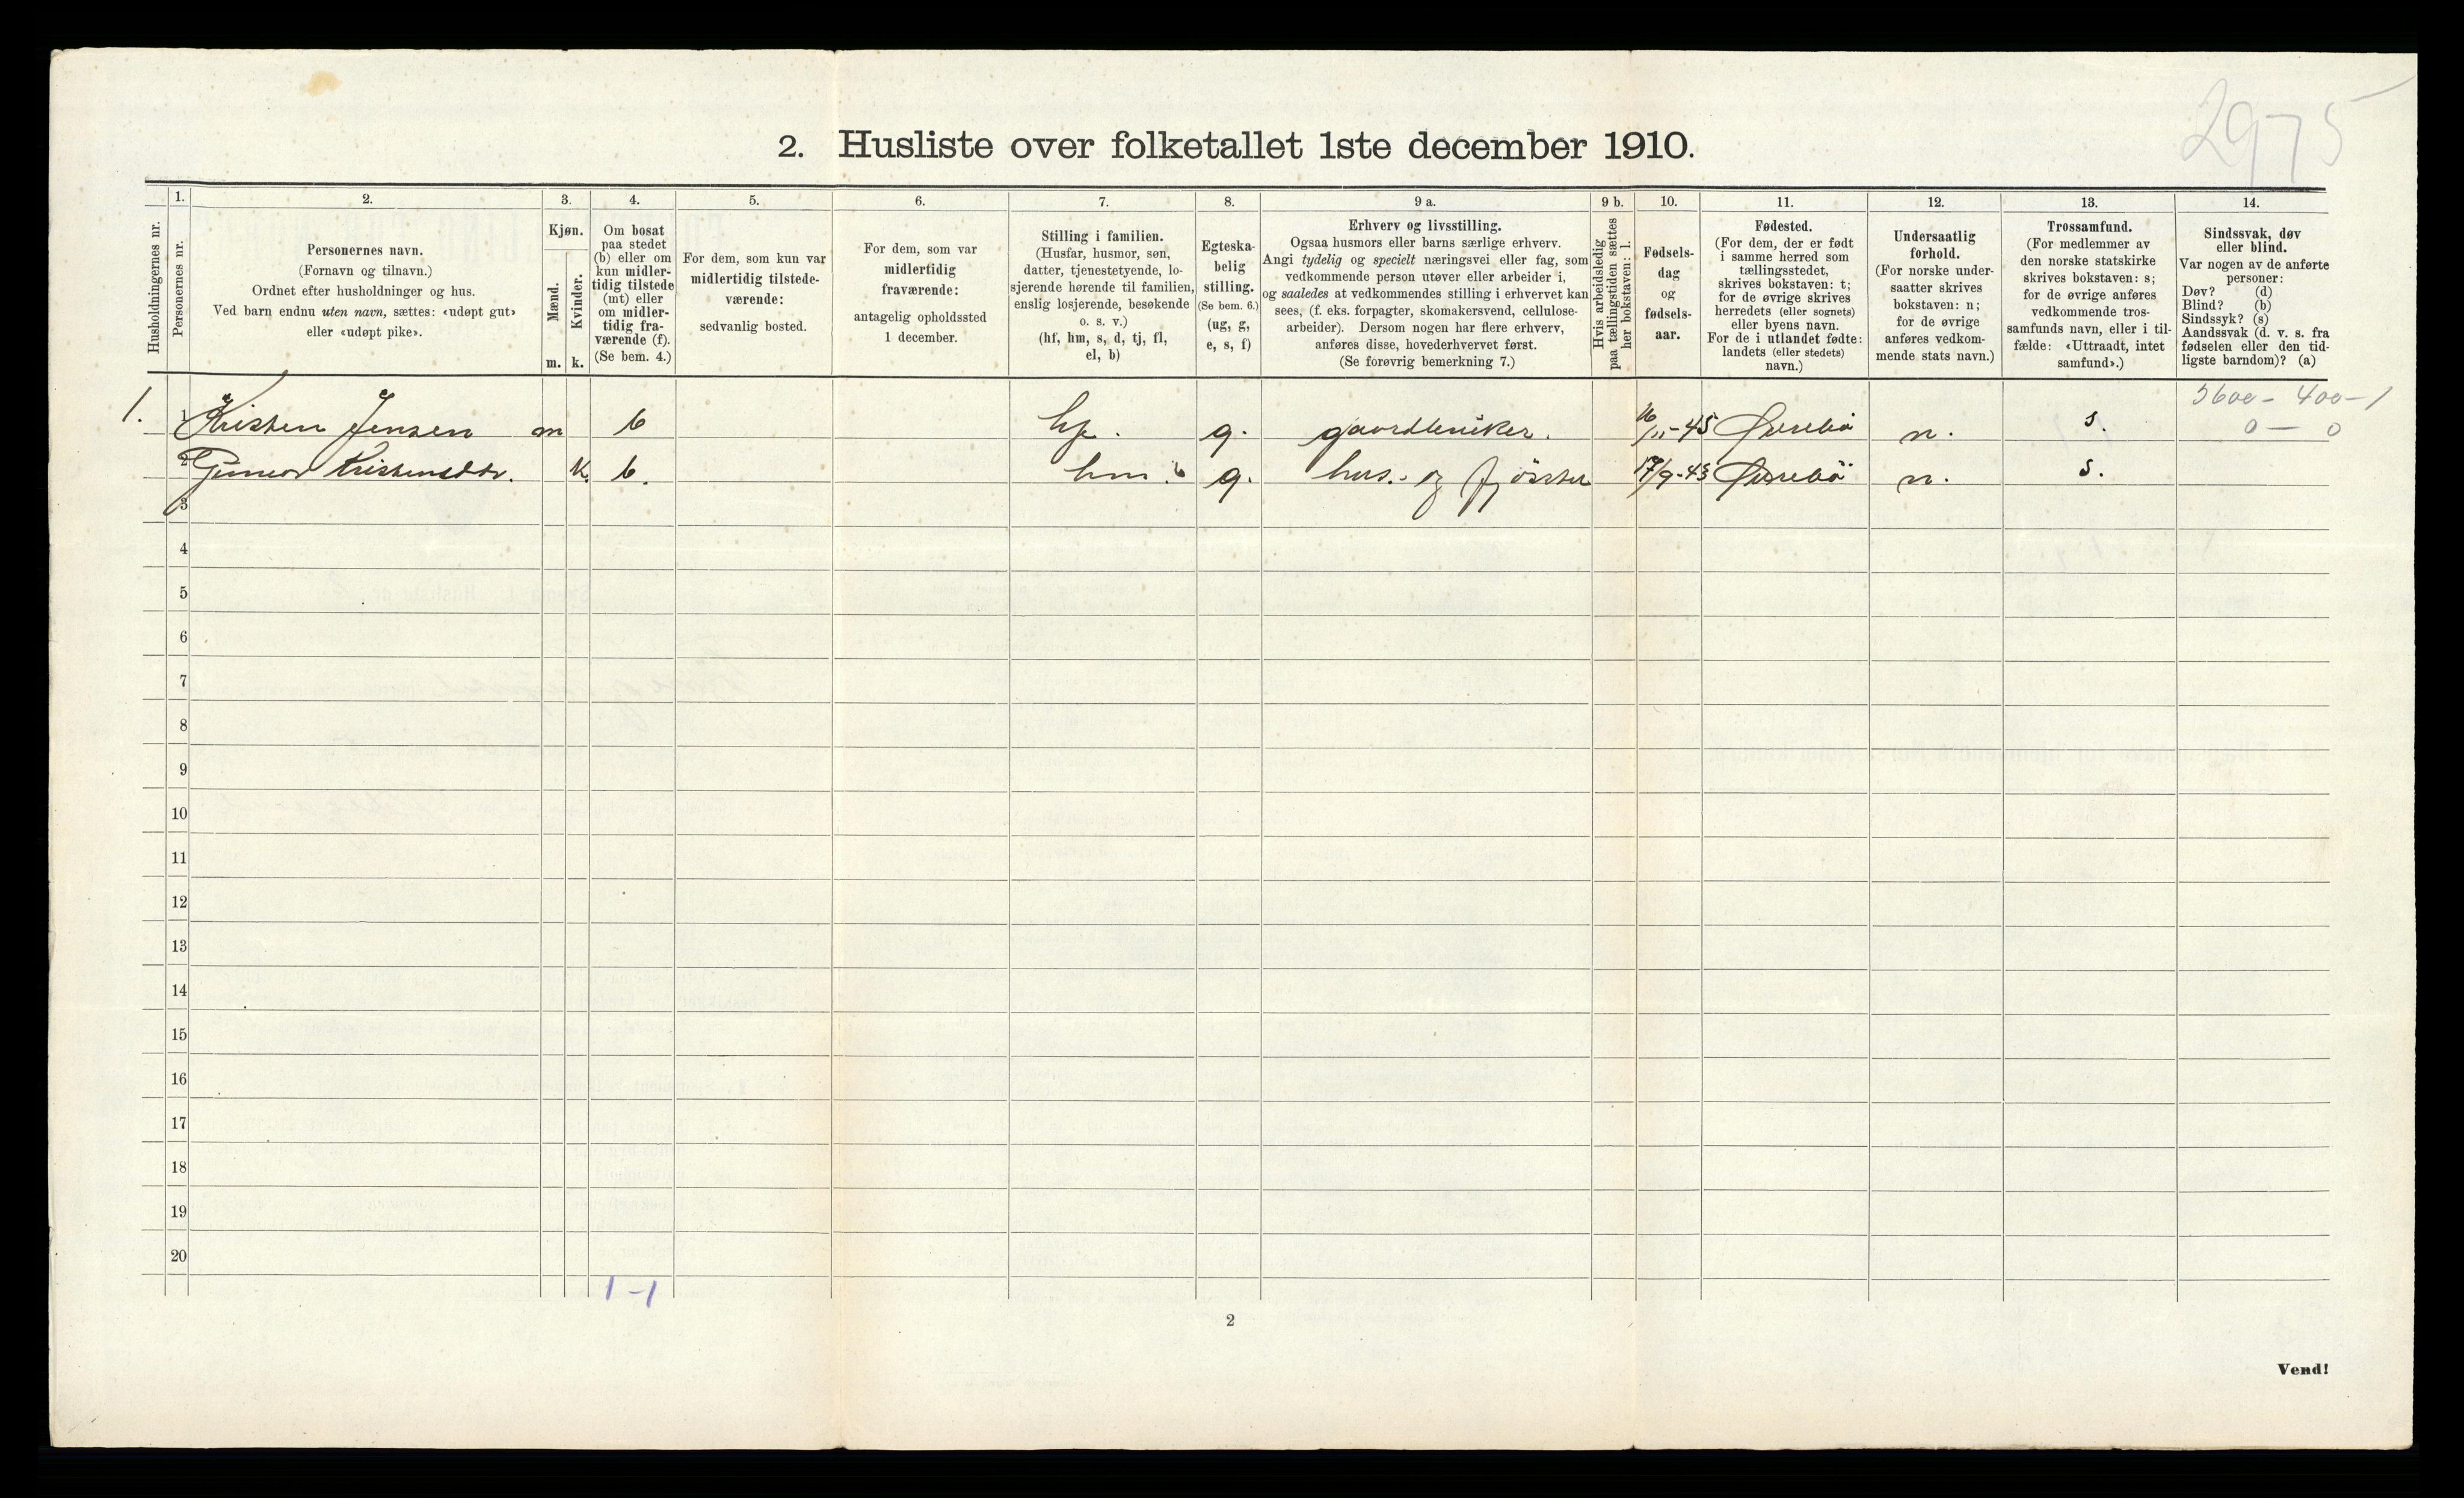 2975
2. Husliste over folketallet 1ste december 1910.
Husholdningernes nr.
1.
Personernes nr.
2.
Personernes navn.
(Fornavn og tilnavn.)
Ordnet efter husholdninger og hus.
Ved barn endnu uten navn, sættes: «udøpt gut»
eller «udøpt pike».
3.
Kjøn.
Mænd.
Kvinder.
m. k.
4.
Om bosat
paa stedet
(b) eller om
kun midler-
tidig tilstede
(mt) eller
om midler-
tidig fra-
værende (f).
(Se bem. 4.)
5.
For dem, som kun var
midlertidig tilstede-
værende:
sedvanlig bosted.
6.
For dem, som var
midlertidig
fraværende:
antagelig opholdssted
1 december.
7.
Stilling i familien.
(Husfar, husmor, søn,
datter, tjenestetyende, lo-
sjerende hørende til familien,
enslig losjerende, besøkende
o. s. v.)
(hf, hm, s, d, tj, fl,
el, b)
8.
Egteska-
belig
stilling.
(Se bem. 6.)
(ug, g,
e, s, f)
9 a.
Erhverv og livsstilling.
Ogsaa husmors eller barns særlige erhverv.
Angi tydelig og specielt næringsvei eller fag, som
vedkommende person utøver eller arbeider i,
og saaledes at vedkommendes stilling i erhvervet kan
sees, (f. eks. forpagter, skomakersvend, cellulose-
arbeider). Dersom nogen har flere erhverv,
anføres disse, hovederhvervet først.
(Se forøvrig bemerkning 7.)
9 b.
Hvis arbeidsledig
paa tællingstiden sættes
her bokstaven: l.
10.
Fødsels-
dag
og
fødsels-
aar.
11.
Fødested.
(For dem, der er født
i samme herred som
tællingsstedet,
skrives bokstaven: t;
for de øvrige skrives
herredets (eller sognets)
eller byens navn.
For de i utlandet fødte:
landets (eller stedets)
navn.)
12.
Undersaatlig
forhold.
(For norske under-
saatter skrives
bokstaven: n;
for de øvrige
anføres vedkom-
mende stats navn.)
13.
Trossamfund.
(For medlemmer av
den norske statskirke
skrives bokstaven: s;
for de øvrige anføres
vedkommende tros-
samfunds navn, eller i til-
fælde: «Uttraadt, intet
samfund».)
14.
Sindssvak, døv
eller blind.
Var nogen av de anførte
personer:
Døv? (d)
Blind? (b)
Sindssyk? (s)
Aandssvak (d. v. s. fra
fødselen eller den tid-
ligste barndom)? (a)
5600 - 400 - 1
0 - 0
1. 1 Kristen Jensen m b hf. g. gaardbruker. 16/11-45 Øvrebö n. s.
2 Gunvor Kristensdtr. k. b. hm. g. hus- og fjösstel 17/9-43 Øvrebö n. s.
3
4
5
6
7
8
9
10
11
12
13
14
15
16
17
18
19
20
1-1
2
Vend!